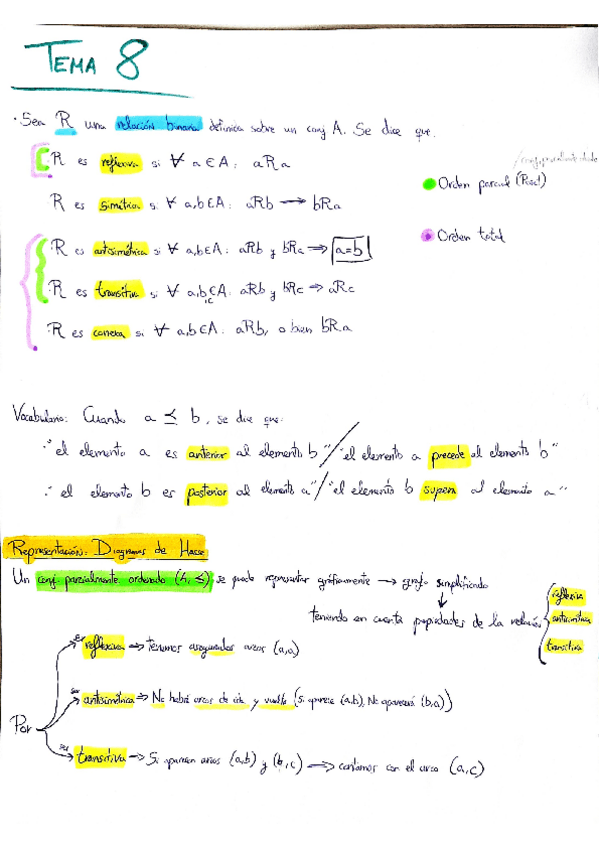 TEMA 8
· Sea R una relación binaria definida sobre un conj A. Se dice que:
R es reflexiva si ∀ a ∈ A: aRa
· Orden parcial (Rad)
R es simétrica si ∀ a,b ∈ A: aRb → bRa
· Orden total
R es antisimétrica si ∀ a,b ∈ A: aRb y bRa ⇒ a=b
R es transitiva si ∀ a,b,c ∈ A: aRb y bRc ⇒ aRc
R es conexa si ∀ a,b ∈ A: aRb, o bien bRa
Vocabulario: Cuando a ≤ b, se dice que:
· "el elemento a es anterior al elemento b" / "el elemento a precede al elemento b"
· "el elemento b es posterior al elemento a" / "el elemento b supera al elemento a"
Representación: Diagramas de Hasse
Un conj. parcialmente ordenado (A, ≤) se puede representar gráficamente → grafo simplificando
teniendo en cuenta propiedades de la relación
reflexiva
antisimétrica
transitiva
Por
ser reflexiva → Tenemos asegurados arcos (a,a)
ser antisimétrica → No habrá arcos de ida y vuelta (si aparece (a,b), No aparecerá (b,a))
ser transitiva → Si aparecen arcos (a,b) y (b,c) ⇒ contamos con el arco (a,c)